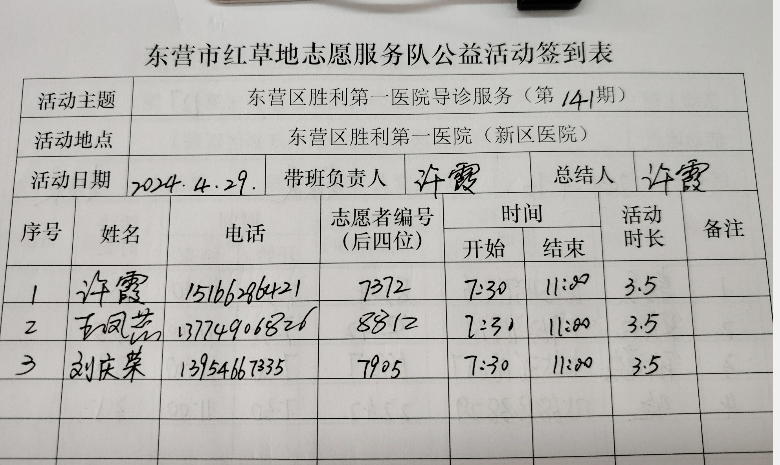 东营市红草地志愿服务队公益活动签到表
活动主题 东营区胜利第一医院导诊服务（第141期）
活动地点 东营区胜利第一医院（新区医院）
活动日期 2024.4.29. 带班负责人 许霞 总结人 许霞
序号 姓名 电话 志愿者编号（后四位） 时间 开始 结束 活动时长 备注
1 许霞 15166286421 7372 7:30 11:00 3.5
2 王凤燕 13774906826 8812 7:30 11:00 3.5
3 刘庆荣 13954667335 7905 7:30 11:00 3.5